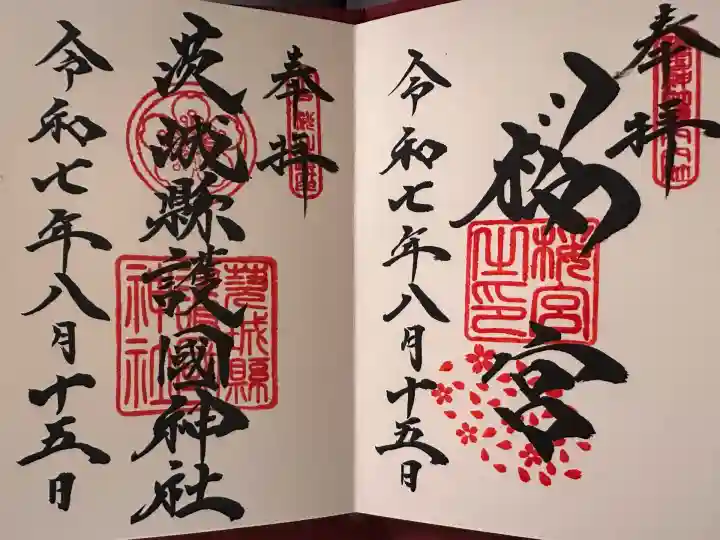 奉拝
桜宮
桜宮之印
令和七年八月十五日
奉拝
茨城縣護國神社
令和七年八月十五日